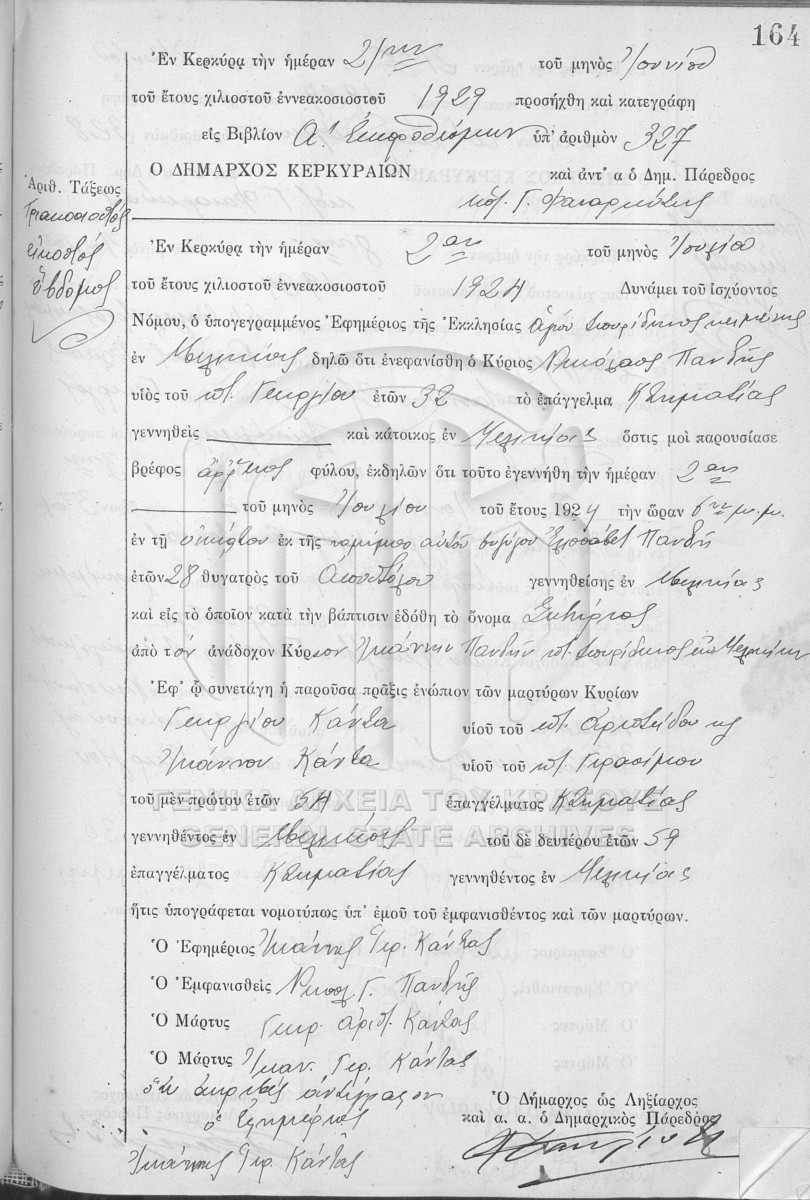 164
Ἐν Κερκύρᾳ τὴν ἡμέραν 21ην τοῦ μηνὸς Ἰουνίου
τοῦ ἔτους χιλιοστοῦ ἐννεακοσιοστοῦ 1929 προσήχθη καὶ κατεγράφη
εἰς Βιβλίον Α' ὑπ' ἀριθμὸν 327
Ο ΔΗΜΑΡΧΟΣ ΚΕΡΚΥΡΑΙΩΝ καὶ ἀντ' α ὁ Δημ. Πάρεδρος
Ἀριθ. Τάξεως
Τριακοσιοστός
εἰκοστός
ἕβδομος
Ἐν Κερκύρᾳ τὴν ἡμέραν 2αν τοῦ μηνὸς Ἰουλίου
τοῦ ἔτους χιλιοστοῦ ἐννεακοσιοστοῦ 1924 Δυνάμει τοῦ ἰσχύοντος
Νόμου, ὁ ὑπογεγραμμένος Ἐφημέριος τῆς Ἐκκλησίας Ἁγίου Σπυρίδωνος
ἐν δηλῶ ὅτι ἐνεφανίσθη ὁ Κύριος Νικόλαος Πανδῆς
υἱὸς τοῦ ποτ. Γεωργίου ἐτῶν 32 τὸ ἐπάγγελμα Κτηματίας
γεννηθεὶς καὶ κάτοικος ἐν ὅστις μοὶ παρουσίασε
βρέφος ἄρρενος φύλου, ἐκδηλῶν ὅτι τοῦτο ἐγεννήθη τὴν ἡμέραν 2αν
τοῦ μηνὸς Ἰουλίου τοῦ ἔτους 1924 τὴν ὥραν 6ην μ.μ.
ἐν τῇ οἰκίᾳ του ἐκ τῆς νομίμου αὐτοῦ συζύγου Ἐλισάβετ Πανδῆ
ἐτῶν 28 θυγατρὸς τοῦ Ἀποστόλου γεννηθείσης ἐν
καὶ εἰς τὸ ὁποῖον κατὰ τὴν βάπτισιν ἐδόθη τὸ ὄνομα Σωτήριος
ἀπὸ τὸν ἀνάδοχον Κύριον Ἰωάννην Πανδῆν ποτ. Σπυρίδωνος
Ἐφ' ᾧ συνετάγη ἡ παροῦσα πρᾶξις ἐνώπιον τῶν μαρτύρων Κυρίων
Γεωργίου Κάντα υἱοῦ τοῦ ποτ. Ἀριστείδου
Ἰωάννου Κάντα υἱοῦ τοῦ ποτ. Γερασίμου
ΓΕΝΙΚΑ ΑΡΧΕΙΑ ΤΟΥ ΚΡΑΤΟΥΣ
GENERAL STATE ARCHIVES
τοῦ μὲν πρώτου ἐτῶν 54 ἐπαγγέλματος Κτηματίας
γεννηθέντος ἐν τοῦ δὲ δευτέρου ἐτῶν 59
ἐπαγγέλματος Κτηματίας γεννηθέντος ἐν
ἥτις ὑπογράφεται νομοτύπως ὑπ' ἐμοῦ τοῦ ἐμφανισθέντος καὶ τῶν μαρτύρων.
Ὁ Ἐφημέριος Ἰωάννης Γερ. Κάντας
Ὁ Ἐμφανισθεὶς Νικολ. Γ. Πανδῆς
Ὁ Μάρτυς Γεωρ. Ἀριστ. Κάντας
Ὁ Μάρτυς Ἰωάν. Γερ. Κάντας
Ὅτι ἀκριβὲς ἀντίγραφον
ὁ Ἐφημέριος
Ἰωάννης Γερ. Κάντας
Ὁ Δήμαρχος ὡς Ληξίαρχος
καὶ α. α. ὁ Δημαρχικὸς Πάρεδρος